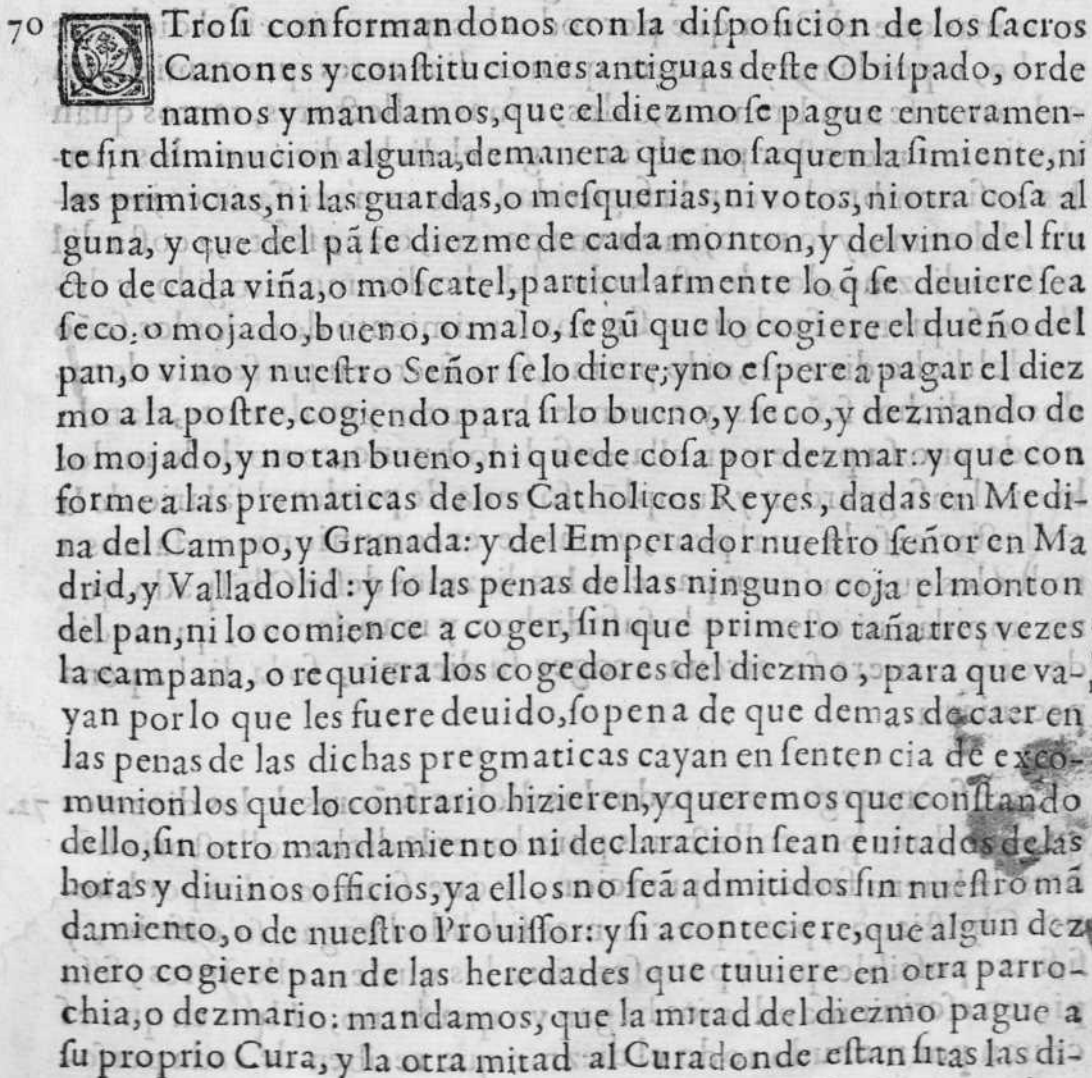 70 OTrosi conformandonos con la disposicion de los sacros
Canones y constituciones antiguas deste Obispado, orde
namos y mandamos, que el diezmo se pague enteramen-
te sin diminucion alguna, demanera que no saquen la simiente, ni
las primicias, ni las guardas, o mesquerias, ni votos, ni otra cosa al
guna, y que del pã se diezme de cada monton, y del vino del fru
cto de cada viña, o moscatel, particularmente lo q̃ se deuiere sea
seco: o mojado, bueno, o malo, segũ que lo cogiere el dueño del
pan, o vino y nuestro Señor se lo diere; y no espere a pagar el diez
mo a la postre, cogiendo para si lo bueno, y seco, y dezmando de
lo mojado, y no tan bueno, ni quede cosa por dezmar: y que con
forme a las prematicas de los Catholicos Reyes, dadas en Medi-
na del Campo, y Granada: y del Emperador nuestro señor en Ma
drid, y Valladolid: y so las penas dellas ninguno coja el monton
del pan, ni lo comience a coger, sin que primero taña tres vezes
la campana, o requiera los cogedores del diezmo, para que va-
yan por lo que les fuere deuido, sopena de que demas de caer en
las penas de las dichas pregmaticas cayan en sentencia de exco-
munion los que lo contrario hizieren, y queremos que constando
dello, sin otro mandamiento ni declaracion sean euitados de las
horas y diuinos officios, y a ellos no seã admitidos sin nuestro mã
damiento, o de nuestro Prouissor: y si aconteciere, que algun dez
mero cogiere pan de las heredades que tuuiere en otra parro-
chia, o dezmario: mandamos, que la mitad del diezmo pague a
su proprio Cura, y la otra mitad al Cura donde estan sitas las di-